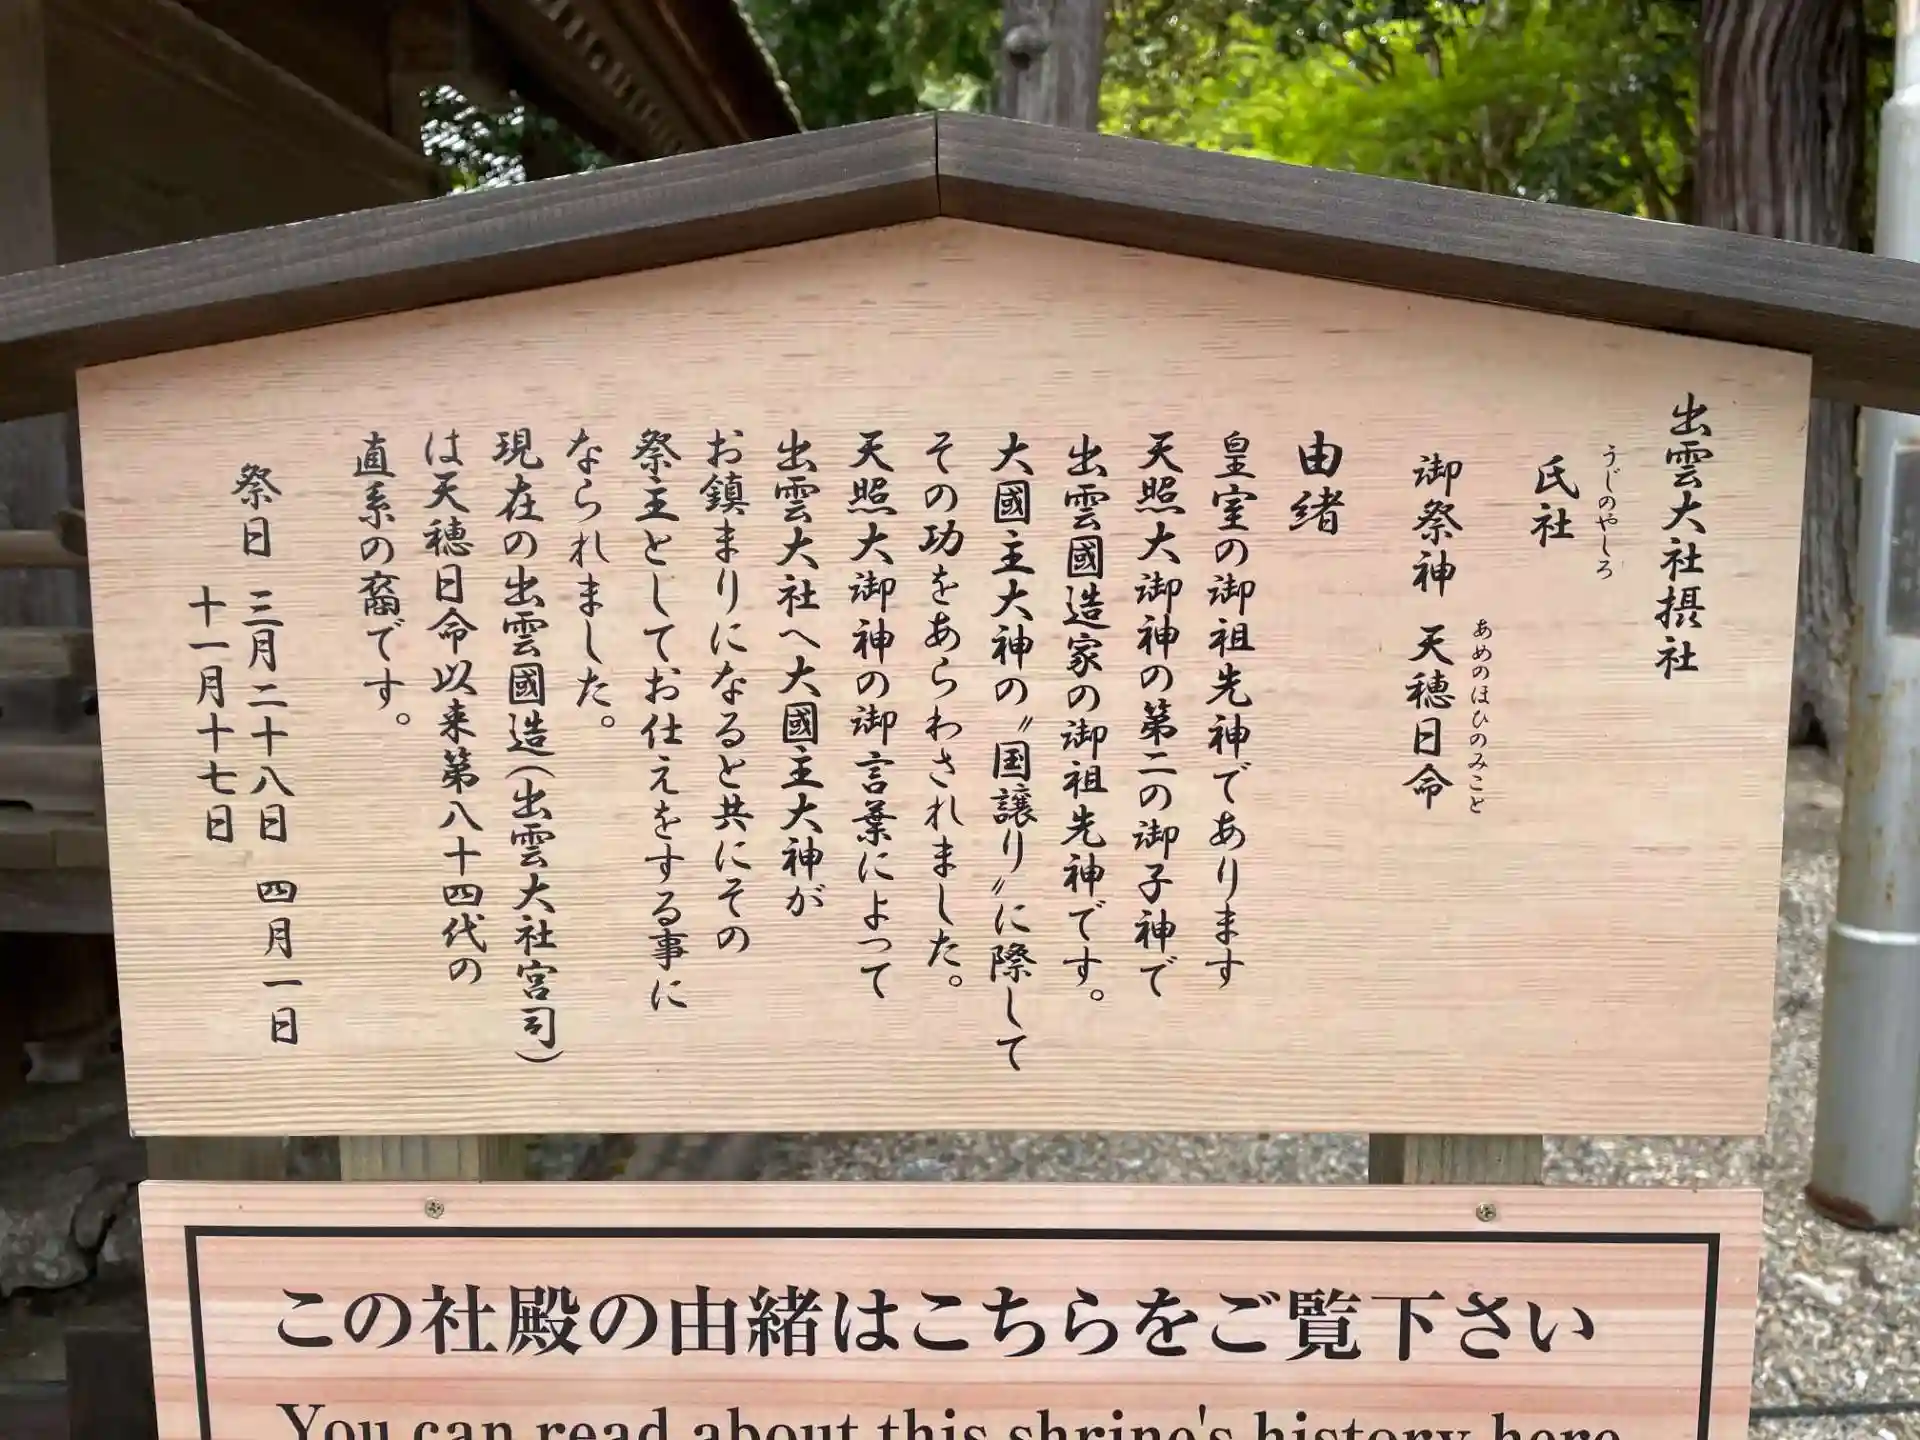 出雲大社摂社
うじのやしろ
氏社
あめのほひのみこと
御祭神　天穂日命
由緒
皇室の御祖先神であります
天照大御神の第二の御子神で
出雲國造家の御祖先神です。
大國主大神の〝国譲り〟に際して
その功をあらわされました。
天照大御神の御言葉によって
出雲大社へ大國主大神が
お鎮まりになると共にその
祭主としてお仕えをする事に
なられました。
現在の出雲國造（出雲大社宮司）
は天穂日命以来第八十四代の
直系の裔です。
祭日　三月二十八日　四月一日
十一月十七日
この社殿の由緒はこちらをご覧下さい
You can read about this shrine's history here